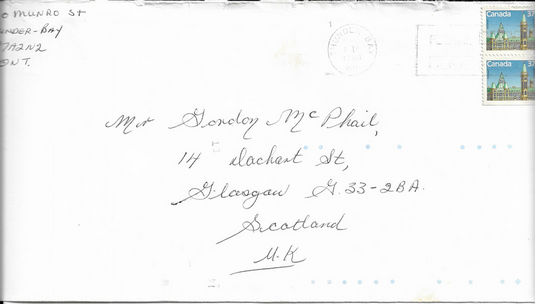 MUNRO St
UNDER-BAY
7A2N2
ONT.
THUNDER BAY
Canada 37
Canada 37
Mr Gordon McPhail,
14 Dachart St,
Glasgow G.33-2BA.
Scotland
U.K